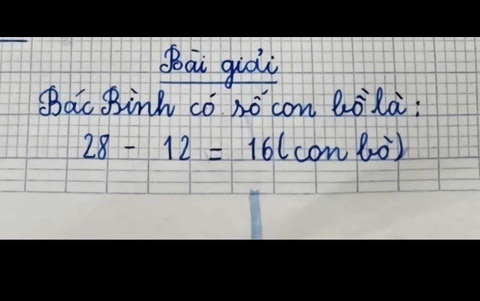 Bài giải
Bác Bình có số con bồ là:
28 - 12 = 16 (con bò)